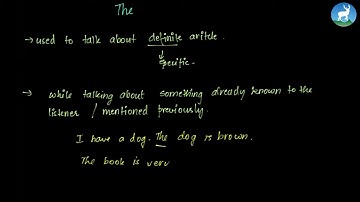 The
→ used to talk about definite aritcle.
↓
specific.
→ while talking about something already known to the
listener / mentioned previously.
I have a dog. The dog is brown.
The book is very